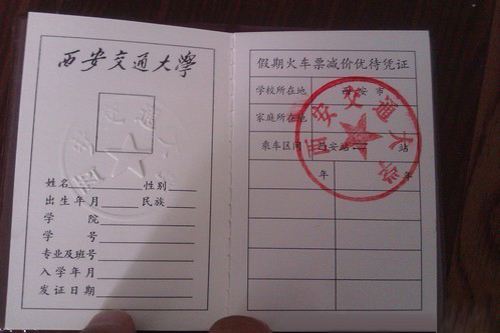 西安交通大學
姓名 性别
出生年月 民族
学院
学号
专业及班号
入学年月
发证日期
假期火车票减价优待凭证
学校所在地 西安市
家庭所在地
乘车区间 西安站一 站
年 年
西安交通大学
西安交通大学